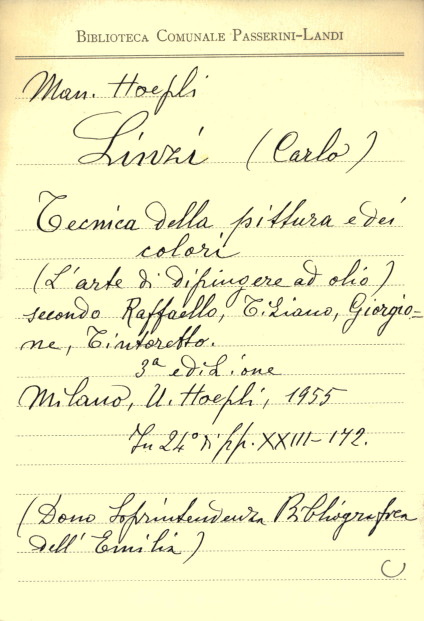 BIBLIOTECA COMUNALE PASSERINI-LANDI
Man. Hoepli
Linzi (Carlo)
Tecnica della pittura e dei
colori
(L'arte di dipingere ad olio)
secondo Raffaello, Tiziano, Giorgio=
ne, Tintoretto.
3ª edizione
Milano, U. Hoepli, 1955
In 24° di pp. XXIII-172.
(Dono Soprintendenza Bibliografica
dell'Emilia)